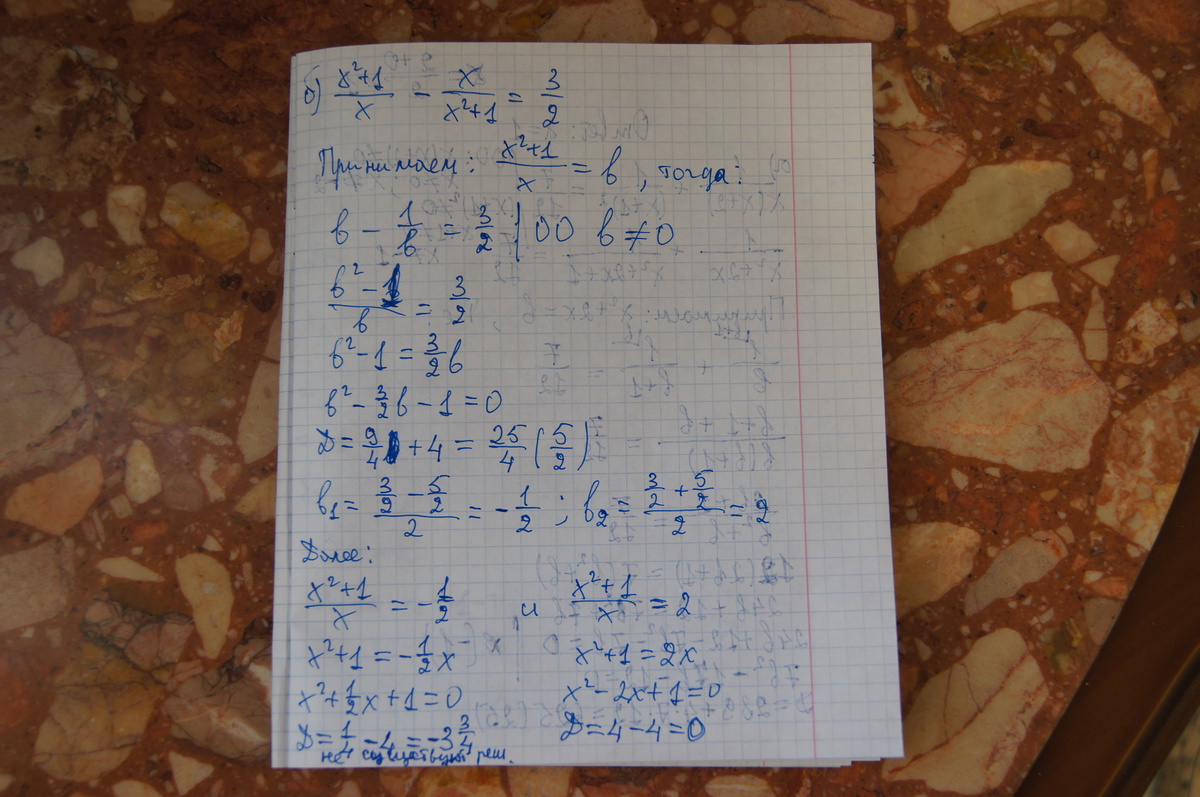 б) x²+1/x - x/x²+1 = 3/2
Принимаем: x²+1/x = в, тогда:
в - 1/в = 3/2 | ОО в ≠ 0
в²-1/в = 3/2
в²-1 = 3/2в
в² - 3/2в - 1 = 0
D = 9/4 + 4 = 25/4 (5/2)
в₁ = 3/2 - 5/2/2 = -1/2 ; в₂ = 3/2 + 5/2/2 = 2
Далее:
x²+1/x = -1/2 и x²+1/x = 2
x²+1 = -1/2x x²+1 = 2x
x²+1/2x+1 = 0 x²-2x+1 = 0
D = 1/4 - 4 = -3 3/4 D = 4-4 = 0
не существуют реш.